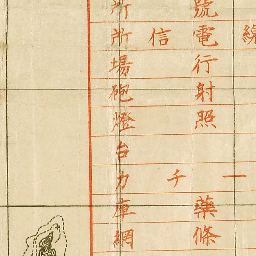 線
號電行射照
信
一
千
藥條
所所場砲燈台力庫網